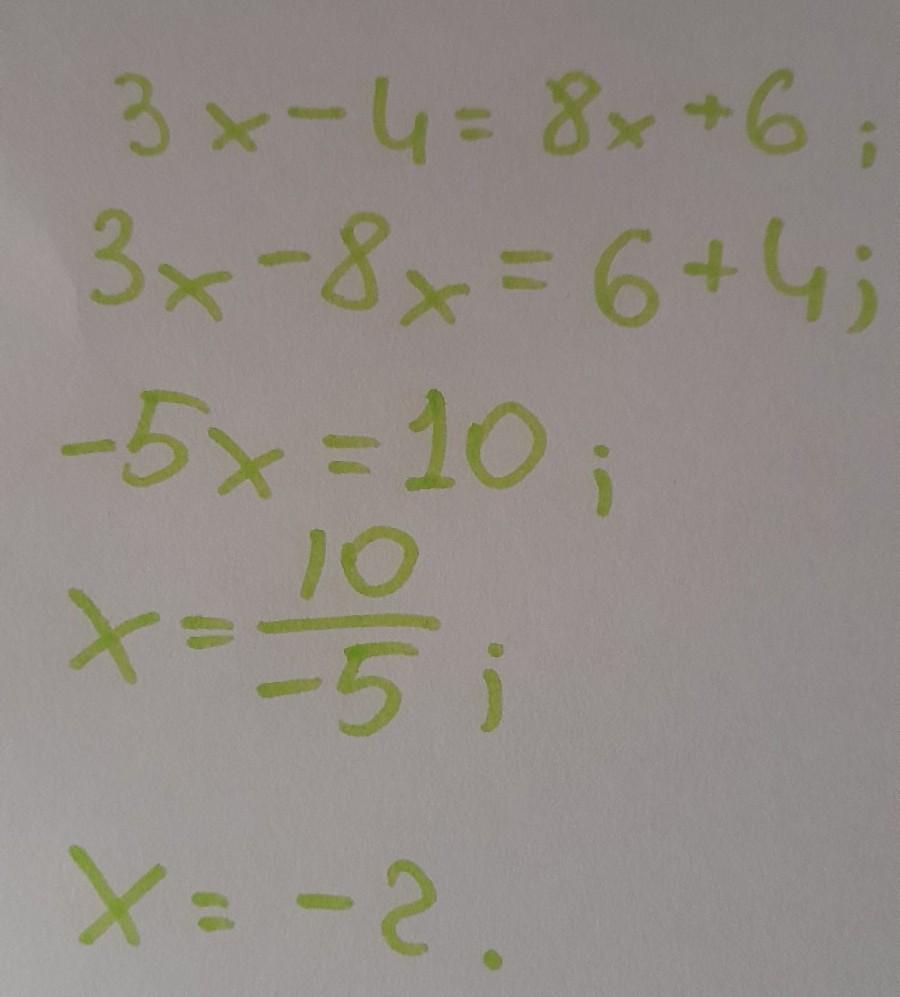 3x - 4 = 8x + 6 ;
3x - 8x = 6 + 4 ;
-5x = 10 ;
x = 10/-5 ;
x = -2 .